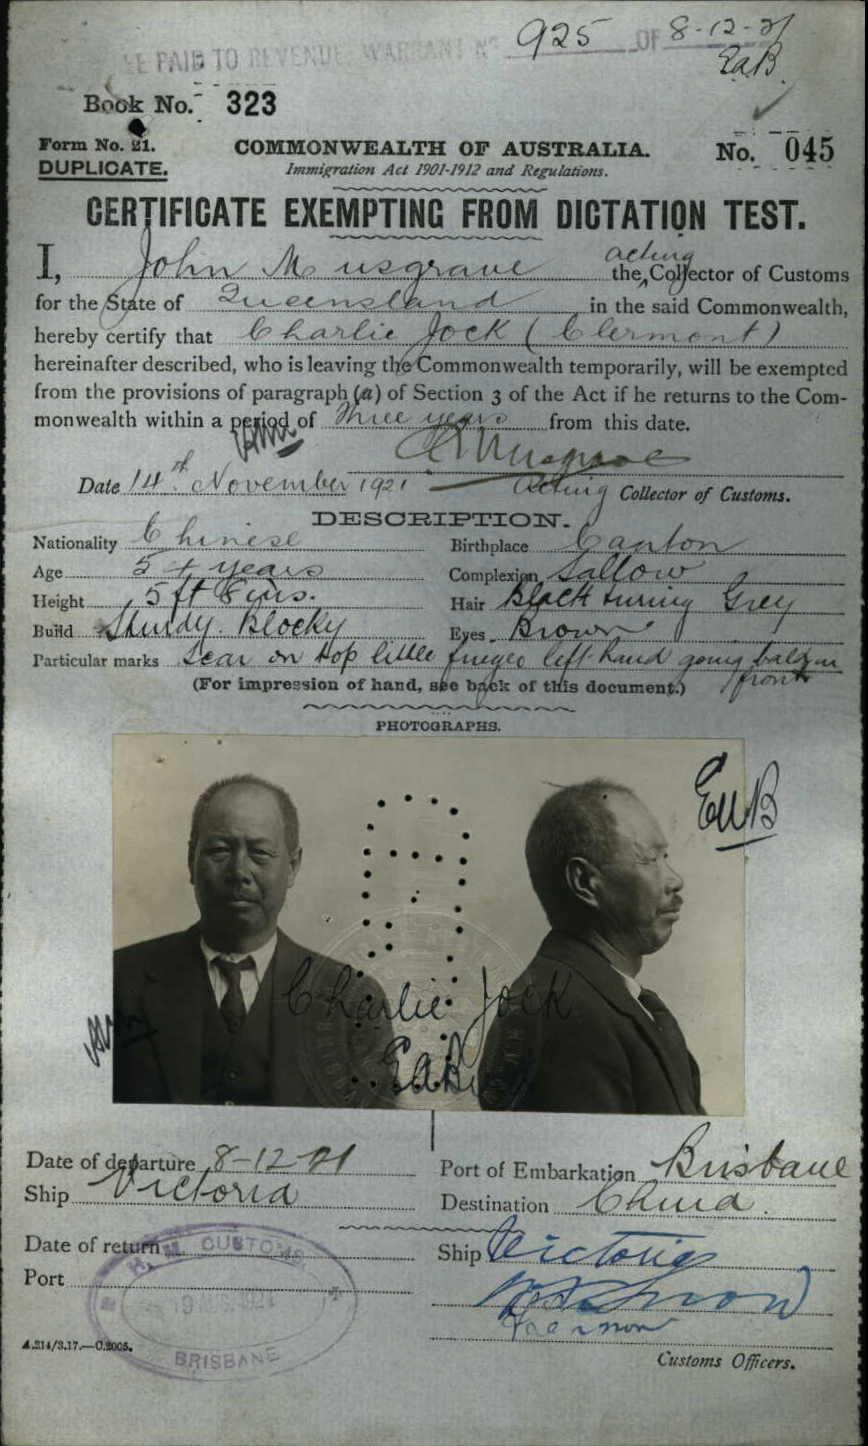 BE PAID TO REVENUE WARRANT No 925 OF 8-12-21
EaB.
Book No. 323
Form No. 21.
DUPLICATE.
COMMONWEALTH OF AUSTRALIA.
Immigration Act 1901-1912 and Regulations.
No. 045
CERTIFICATE EXEMPTING FROM DICTATION TEST.
I, John Musgrave the acting Collector of Customs
for the State of Queensland in the said Commonwealth,
hereby certify that Charlie Jock (Clermont)
hereinafter described, who is leaving the Commonwealth temporarily, will be exempted
from the provisions of paragraph (a) of Section 3 of the Act if he returns to the Com-
monwealth within a period of Three years from this date.
Musgrave
Date 14th November 1921
Acting Collector of Customs.
DESCRIPTION.
Nationality Chinese Birthplace Canton
Age 54 years Complexion Sallow
Height 5 ft 8 ins. Hair Black turning Grey
Build Sturdy. Blocky Eyes Brown
Particular marks Scar on top little finger left hand going bald in
front
(For impression of hand, see back of this document.)
PHOTOGRAPHS.
Charlie Jock
EaB
Date of departure 8-12-21 Port of Embarkation Brisbane
Ship Victoria Destination China.
Date of return Ship Victoria
Port
H. M. CUSTOMS
BRISBANE
A.214/3.17.—C.2005.
Customs Officers.